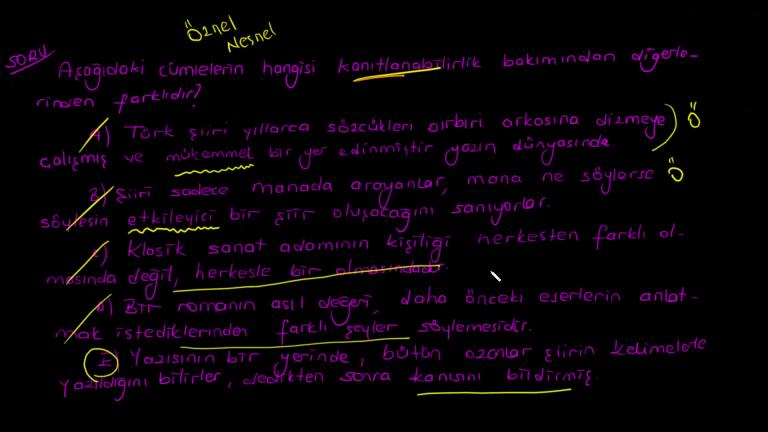 Öznel
Nesnel
SORU
Aşağıdaki cümlelerin hangisi kanıtlanabilirlik bakımından diğerle-
rinden farklıdır?
A) Türk şiiri yıllarca sözcükleri birbiri arkasına dizmeye Ö
çalışmış ve mükemmel bir yer edinmiştir yazın dünyasında.
B) Şiiri sadece manada arayanlar, mana ne söylerse Ö
söylesin etkileyici bir şiir oluşacağını sanıyorlar.
C) Klasik sanat adamının kişiliği herkesten farklı ol-
masında değil, herkesle bir olmasındadır.
D) Bir romanın asıl değeri, daha önceki eserlerin anlat-
mak istediklerinden farklı şeyler söylemesidir.
E) Yazısının bir yerinde, bütün ozanlar şiirin kelimelerle
yazıldığını bilirler, dedikten sonra kanısını bildirmiş.